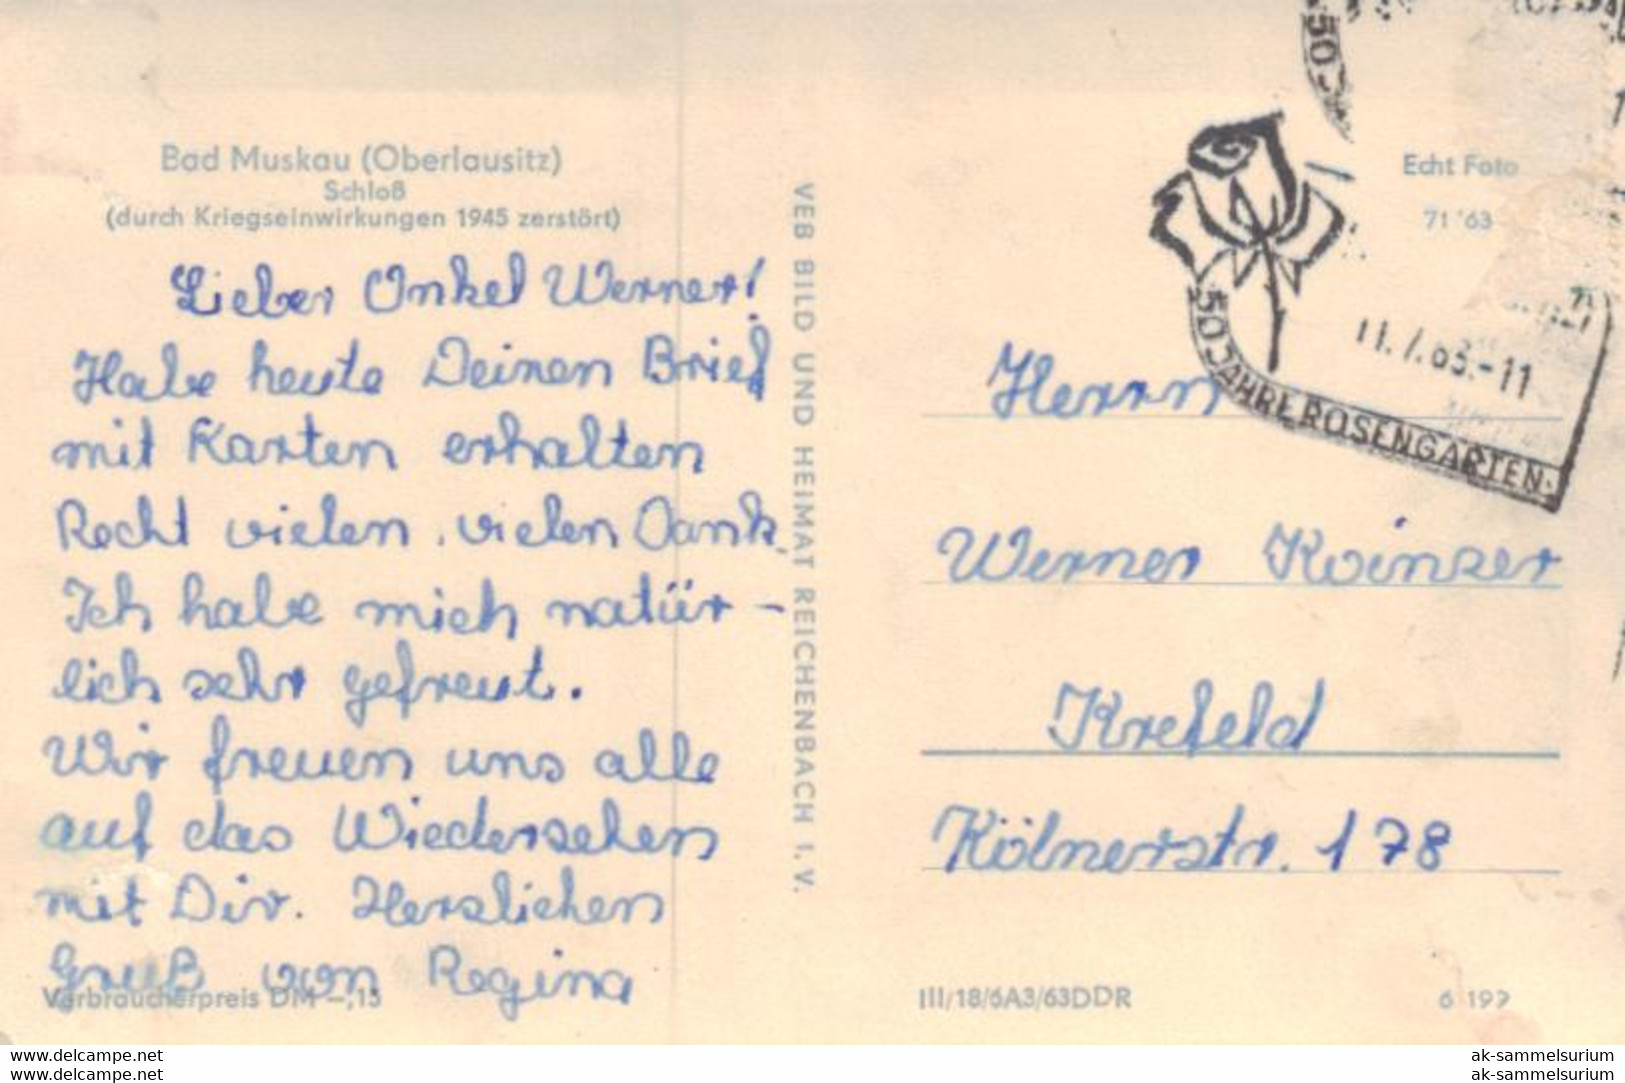 Bad Muskau (Oberlausitz)
Schloß
(durch Kriegseinwirkungen 1945 zerstört)
Lieber Onkel Werner!
Habe heute Deinen Brief
mit Karten erhalten
Recht vielen, vielen Dank.
Ich habe mich natür-
lich sehr gefreut.
Wir freuen uns alle
auf das Wiedersehen
mit Dir. Herzlichen
Gruß von Regina
Verbraucherpreis DM -,15
VEB BILD UND HEIMAT REICHENBACH I. V.
50 J
Echt Foto
71 '63
11.7.63.-11
50 JAHRE ROSENGARTEN
Herrn
Werner Kvinzer
Krefeld
Kölnerstr. 178
III/18/6A3/63DDR
6 199
www.delcampe.net
www.delcampe.com
ak-sammelsurium
ak-sammelsurium